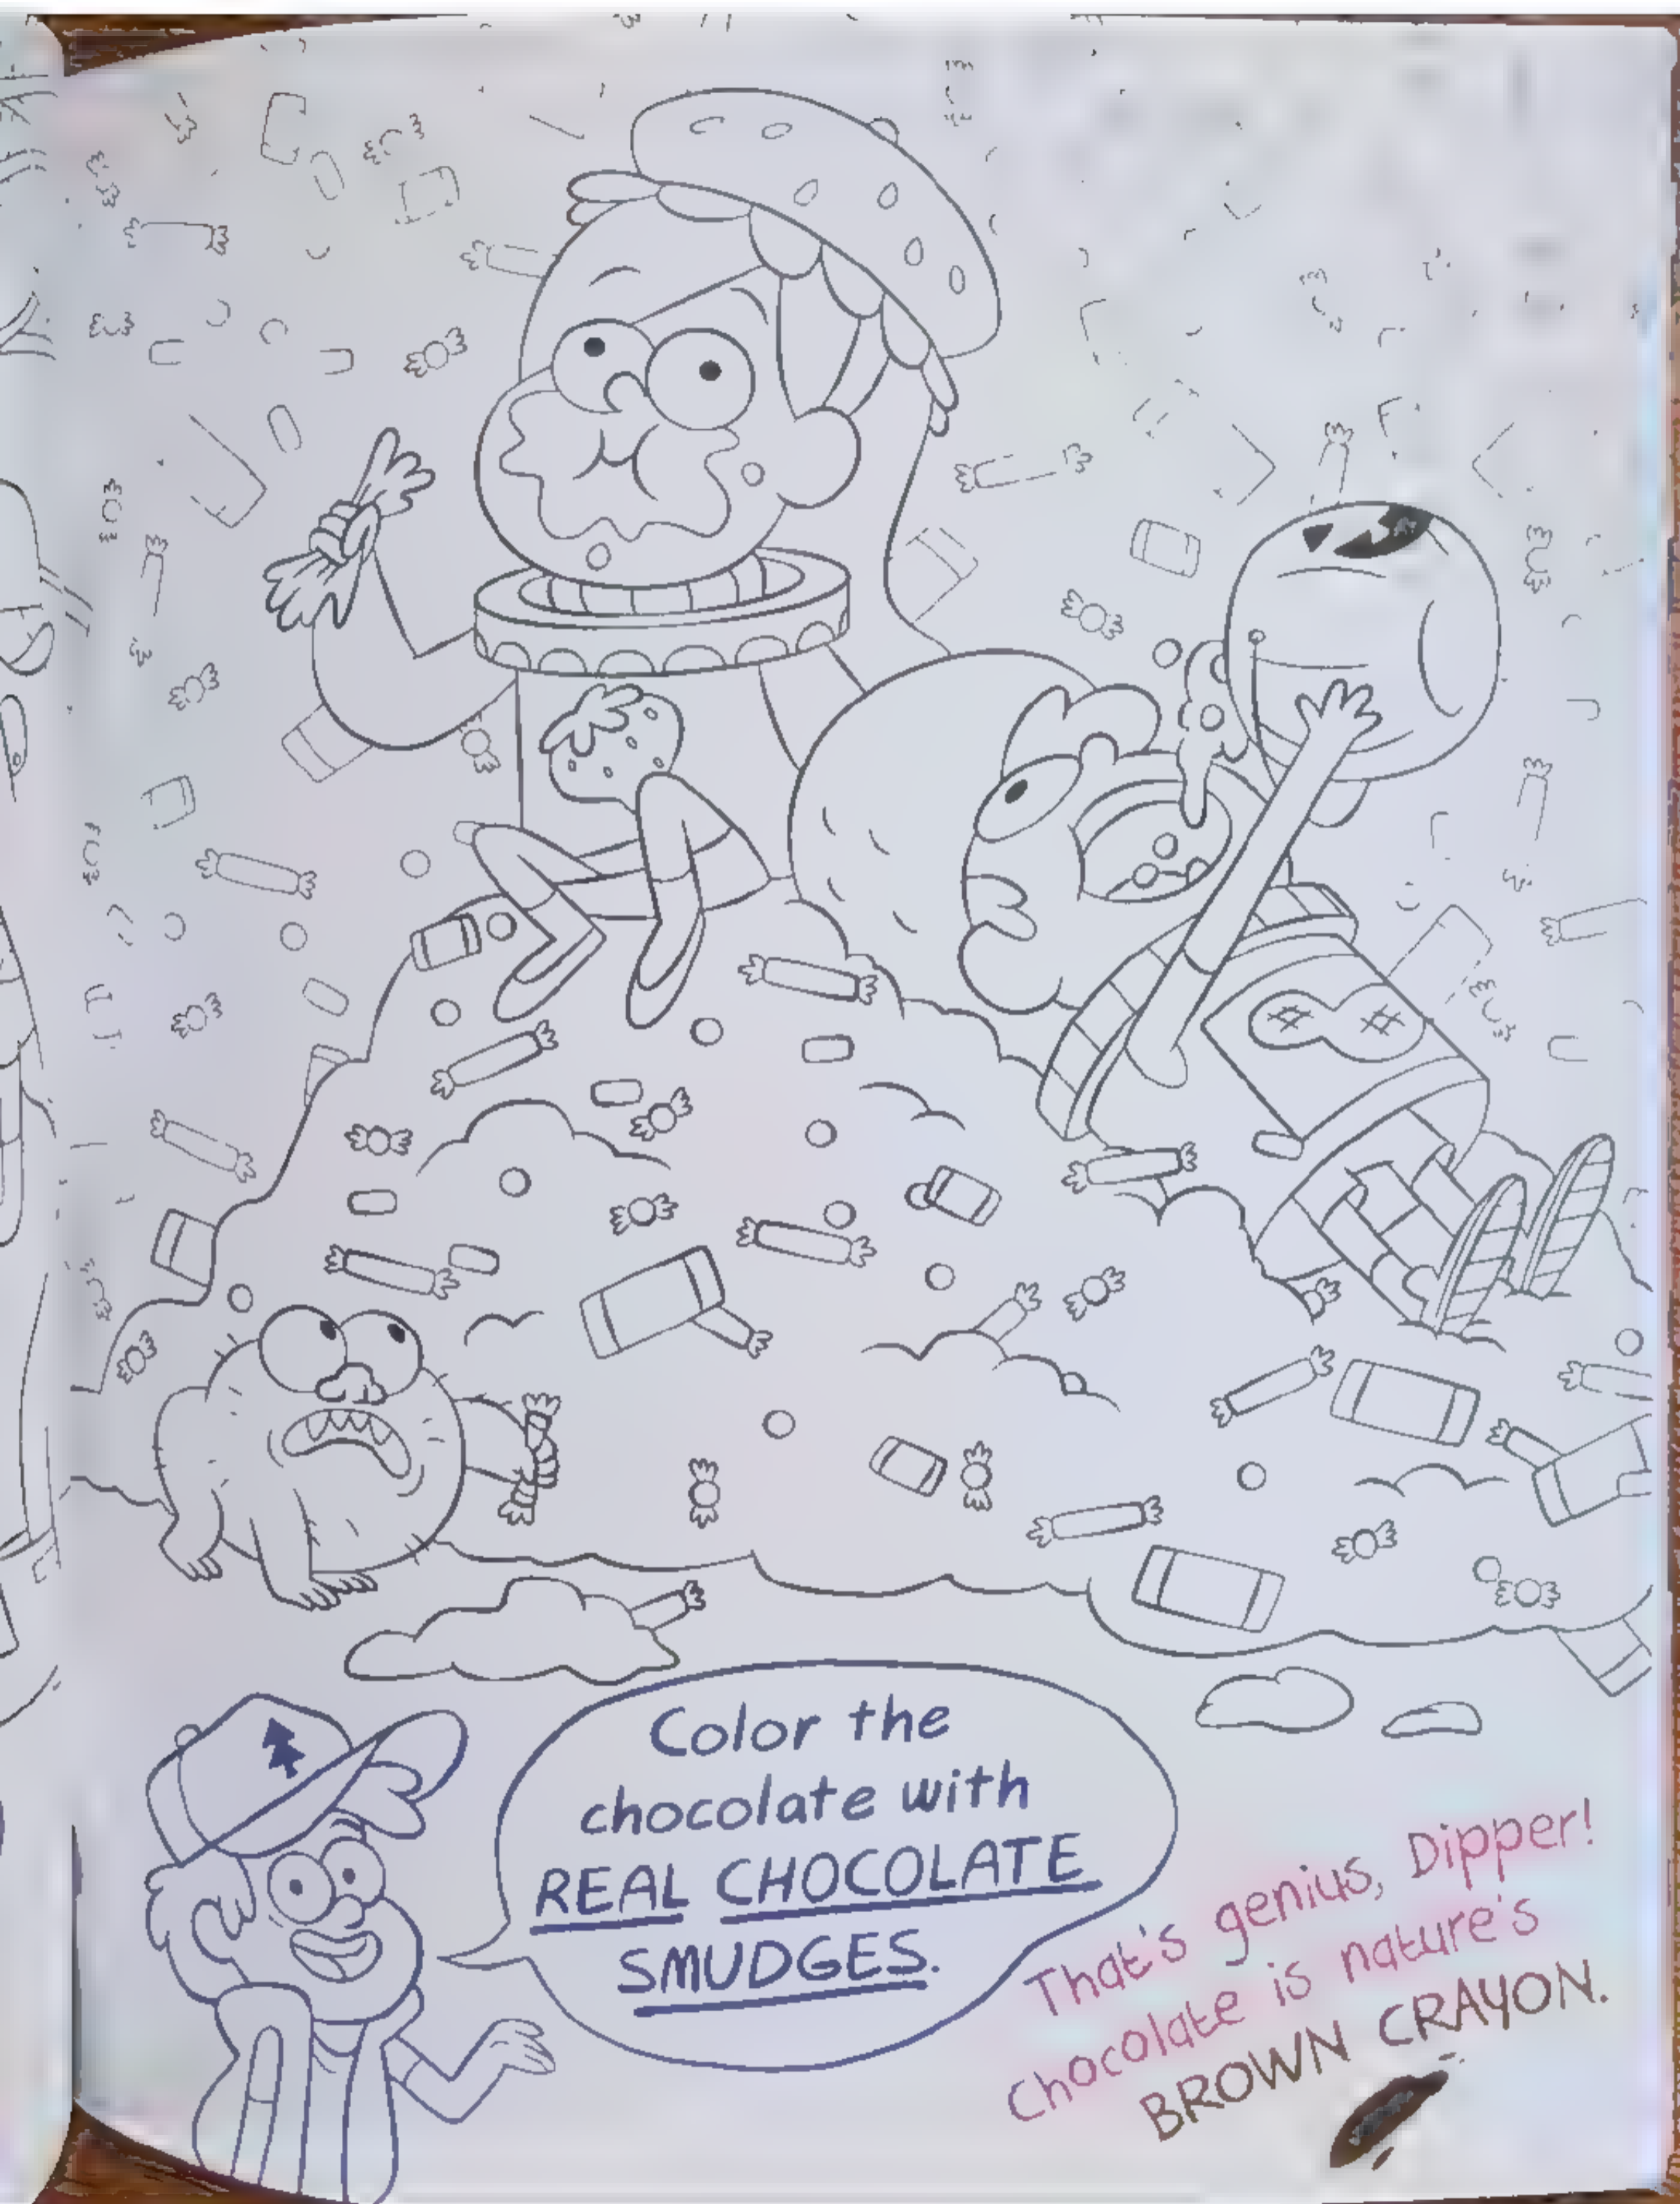 Color the
chocolate with
REAL CHOCOLATE
SMUDGES.
That's genius, Dipper!
Chocolate is nature's
BROWN CRAYON.